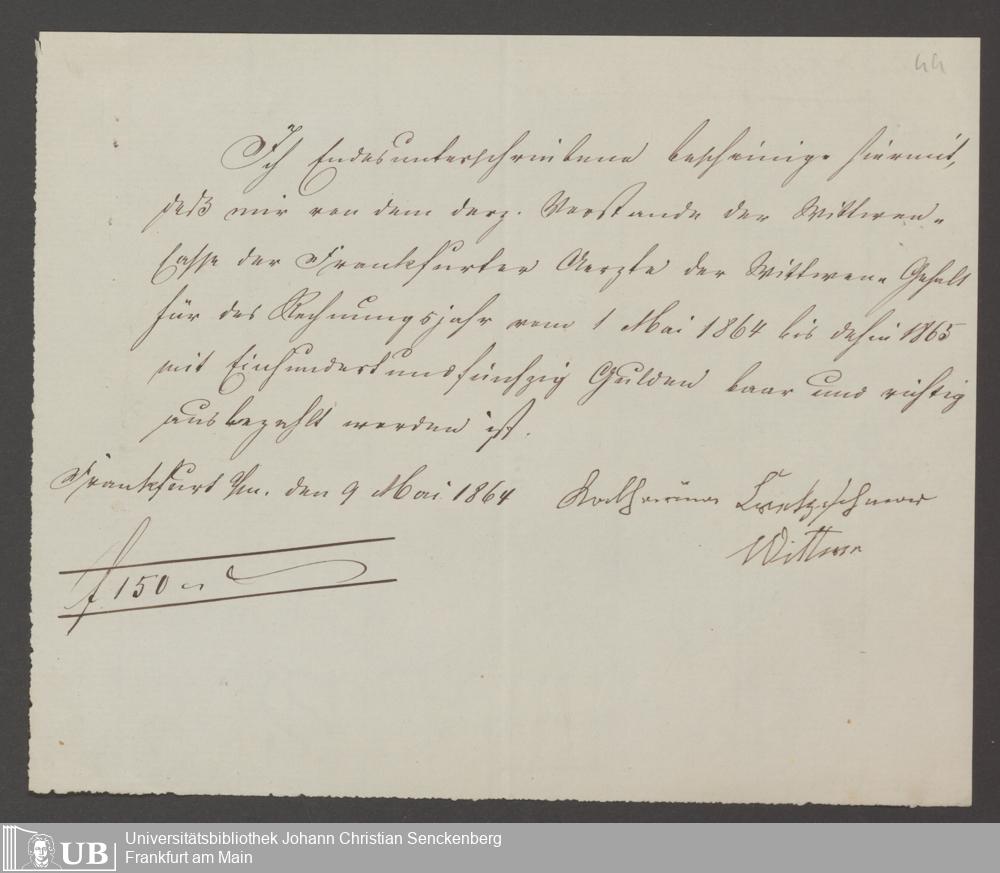 44
Ich Endesunterschriebene bescheinige hiermit,
daß mir von dem derz. Vorstande der Wittwen-
Casse der Frankfurter Aerzte der Wittwen-Gehalt
für das Rechnungsjahr vom 1 Mai 1864 bis dahin 1865
mit Einhundertundfünfzig Gulden baar und richtig
ausbezahlt worden ist.
Frankfurt a/m. den 9 Mai 1864 Katharina Cretzschmar
Wittwe
f 150
UB
Universitätsbibliothek Johann Christian Senckenberg
Frankfurt am Main